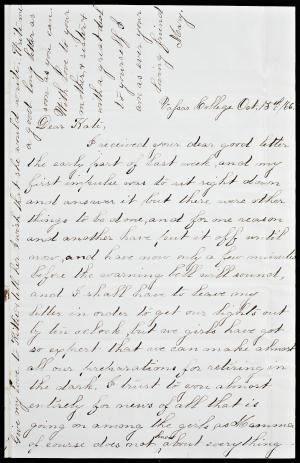 Vassar College Oct. 15th/66
Dear Kate,
I received your dear good letter
the early part of last week, and my
first impulse was to sit right down
and answer it but there were other
things to be done, and for one reason
and another have put it off until
now, and have now only a few minutes
before the warning bell will sound,
and I shall have to leave my
letter in order to get our lights out
by ten o'clock, but we girls have got
so expert that we can make almost
all our preparations for retiring in
the dark. I trust to you almost
entirely for news of all that is
going on among the girls, as Mamma
of course does not know about everything
Give my love to tell her I wish that she would write. Write me
a good long letter as
soon as you can.
With love to your
mother & sister &
with a great deal
to yourself I
am as ever your
loving friend
Mary.